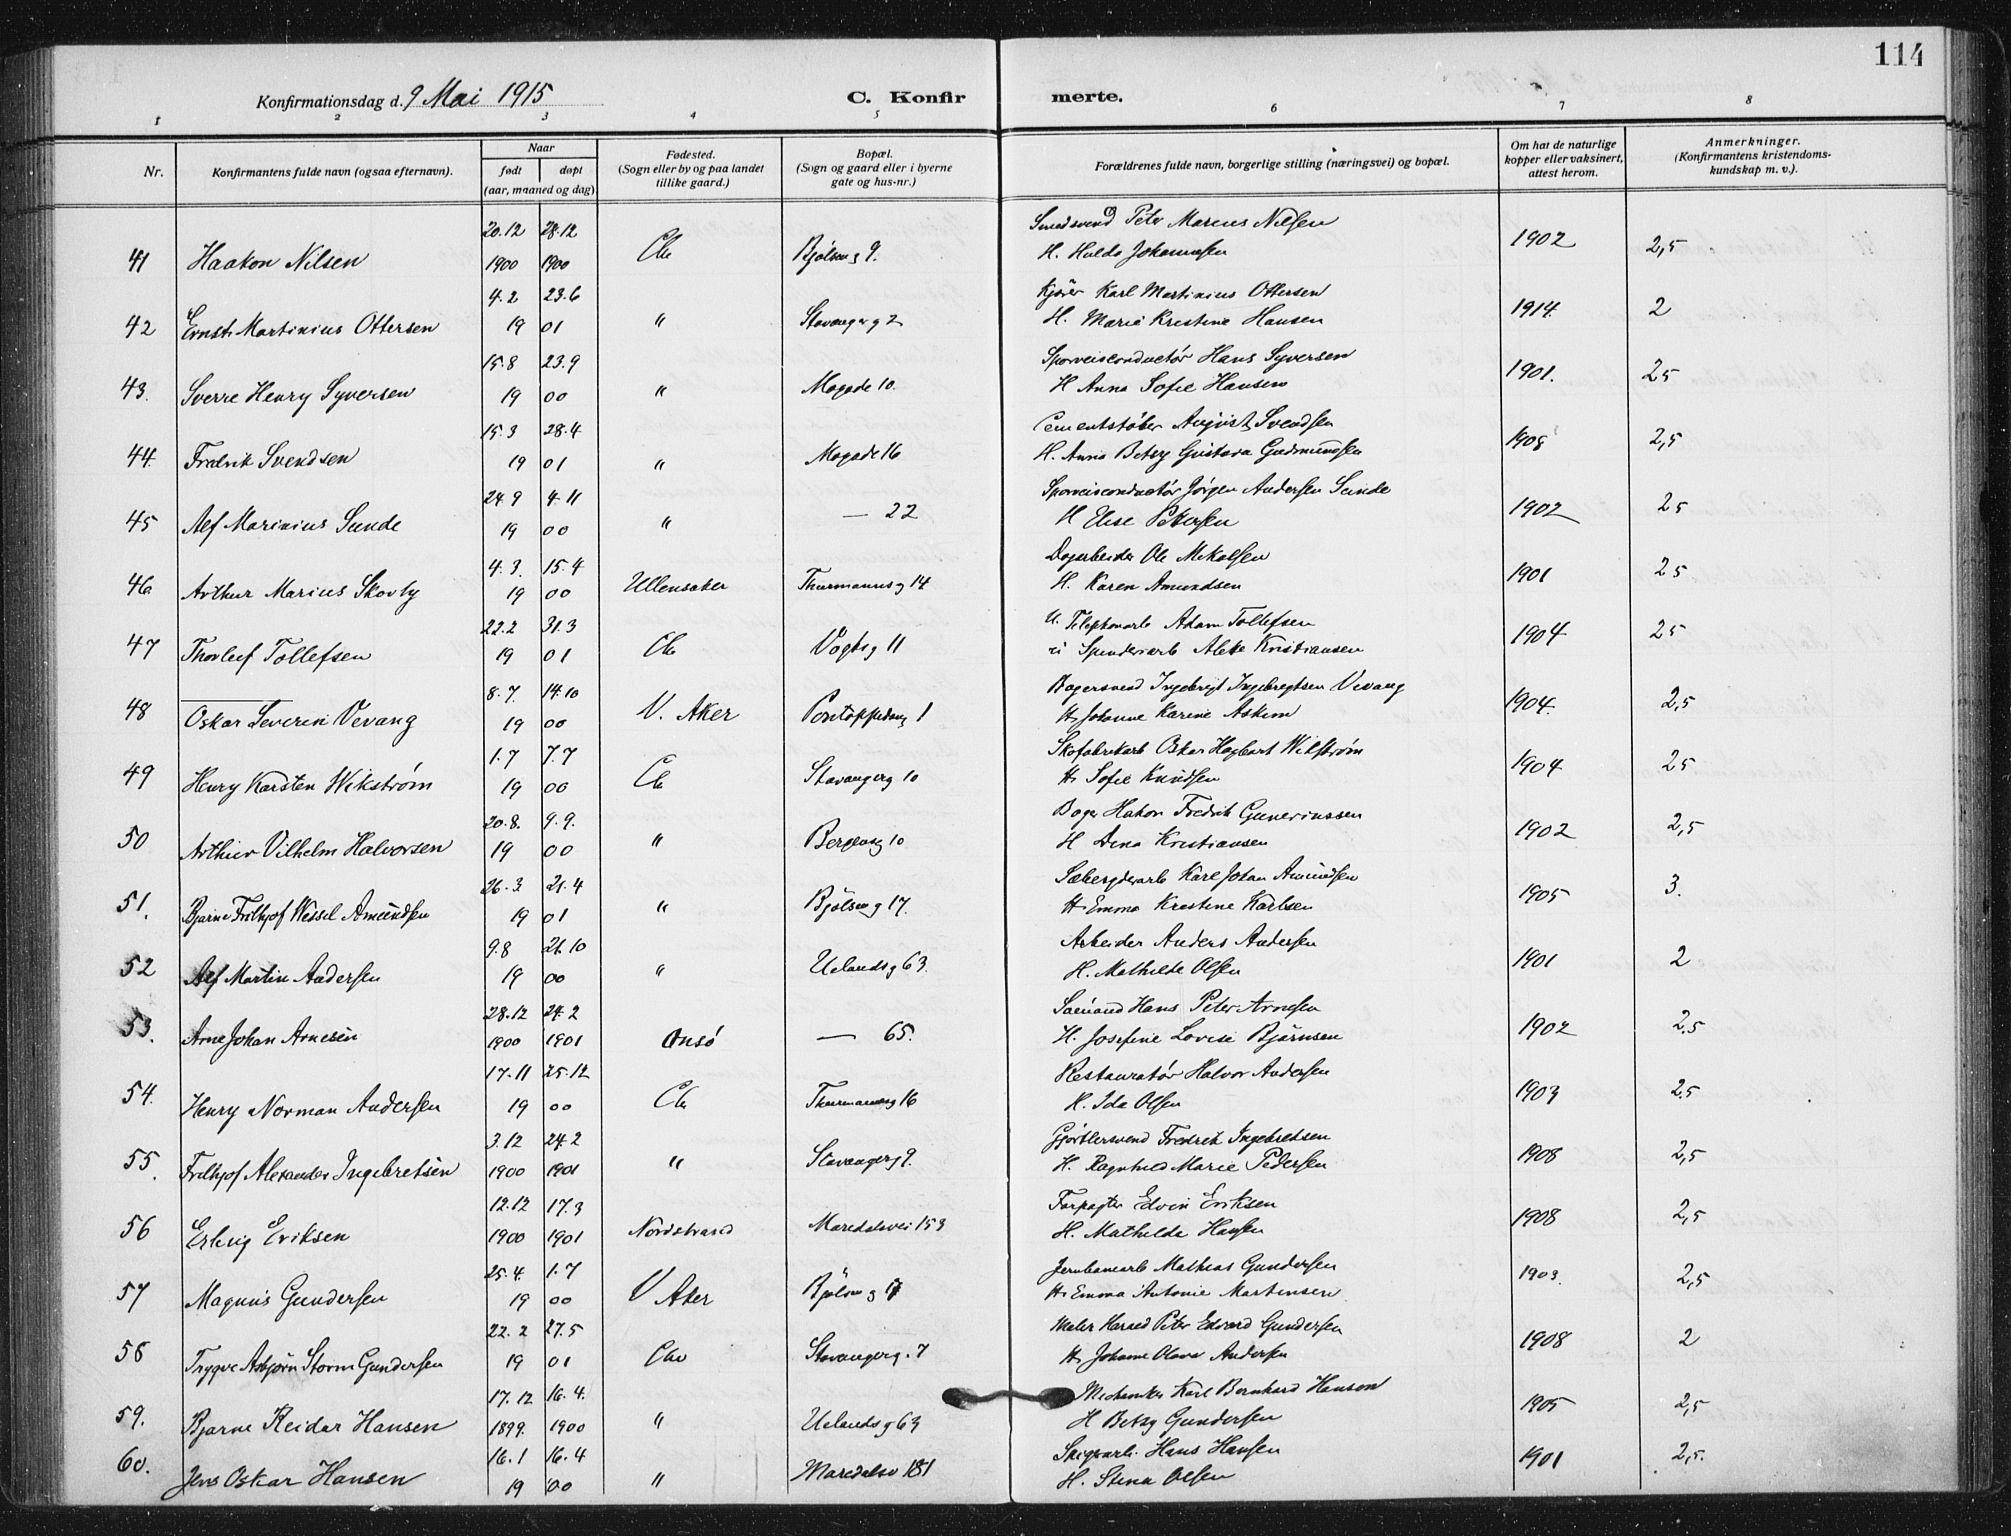 114
Konfirmationsdag d. 9 Mai 1915
C. Konfirmerte.
1 2 3 4 5 6 7 8
Nr.
Konfirmantens fulde navn (ogsaa efternavn).
Naar
født døpt
(aar, maaned og dag)
Fødested.
(Sogn eller by og paa landet
tillike gaard.)
Bopæl.
(Sogn og gaard eller i byerne
gate og hus-nr.)
Forældrenes fulde navn, borgerlige stilling (næringsvei) og bopæl.
Om hat de naturlige
kopper eller vaksinert,
attest herom.
Anmerkninger.
(Konfirmantens kristendoms-
kundskap m. v.).
20.12 28.12 Smedsvend Petr Marius Nilsen
41 Haakon Nilsen 1900 1900 Chr Bjølseng 9. H. Hulda Johannesen 1902 2,5
4.2 23.6 Kjører Karl Martinius Ottersen
42 Ernst Martinius Ottersen 19 01 " Stavangerg 2 H. Marie Kristine Hansen 1914 2
15.8 23.9 Sporveisconductør Hans Syversen
43. Sverre Henry Syversen 19 00 " Mogade 10. H Anna Sofie Hansen 1901. 25
15.3 28.4 Cementstøber August Svendsen
44. Fredrik Svendsen 19 01 " Mogade 16 H. Anna Betzy Gustava Gudmundsen 1908 2,5
24.9 4.11 Sporveisconductør Jørgen Andersen Sunde
45 Alf Marinius Sunde 19 00 " — 22 H Elise Petersen 1902 25
4.3. 15.4 Dagarbeider Ole Mikalsen
46. Arthur Marius Skovly 19 00 Ullensaker Thurmannsg 14 H. Karen Amundsen 1901 25
22.2 31.3 U. Telefonarb Adam Tollefsen
47 Thorleif Tollefsen 19 01 Chr Vogtsg 11 Spinderiarb Aleke Kristiansen 1904 25
8.7. 14.10 Bagersvend Ingebrigt Ingebregtsen Vevang
48 Oskar Severin Vevang 19 00 V. Aker Pontoppidang 1 H. Johanne Karine Askim 1904. 2,5
1.7 7.7 Skofabrikarb Oskar Hagbart Wikstrøm
49 Henry Karsten Wikstrøm 19 00 Chr Stavangerg 10 H. Sofie Knudsen 1904 25
20.8. 9.9. Bager Hakon Fredrik Gunerinssen
50 Arthur Vilhelm Halvorsen 19 00 " Bergensg 10 H Dina Kristiansen 1902 2,5
26.3. 21.4 Karl Johan Amundsen
51. Bjarne Frithjof Wessel Amundsen 19 01 " Bjølseng 17. H. Emma Kristine Karlsen 1905 3.
9.8 21.10 Arbeider Anders Andersen
52 Alf Martin Andersen 19 00 " Uelandsg 63. H. Mathilde Olsen 1901 2
28.12 24.2 Sømand Hans Peter Arnesen
53. Arne Johan Arnesen 1900 1901 Onsø — 65. H. Josefine Lovise Bjørnsen 1902 2,5
17.11 25.12 Restauratør Halvor Andersen
54. Henry Norman Andersen 19 00 Chr Thurmannsg 16 H. Ida Olsen 1903 2,5
3.12 24.2 Gjørtlersvend Fredrik Ingebretsen
55. Frithjof Alexander Ingebretsen 1900 1901 " Stavangerg 9. H. Ragnhild Marie Pedersen 1908 2,5
12.12 17.3 Forpagter Edvin Eriksen
56 Erling Eriksen 1900 1901 Nordstrand Maredalsvei 153 H. Mathilda Hansen 1908 2,5
25.4. 1.7 Jernbanearb Mathias Gundersen
57 Magnus Gundersen 19 00 V Aker Bjølseng 17 H. Emma Antonie Martinsen 1903. 2,5
22.2 27.5 Maler Harald Peter Edvard Gundersen
58 Trygve Asbjørn Storm Gundersen 19 01 Chr Stavangerg. 7 H. Johanne Olava Andersen 1908 2
17.12 16.4. Mekaniker Karl Bernhard Hanson
59. Bjarne Reidar Hansen 1899. 1900 " Uelandsg 63 H Betzy Gundersen 1905 2,5
16.1 16.4 Hans Hansen
60. Jens Oskar Hansen 19 00 " Maredalsv 181 H. Stina Olsen 1901 2,5.